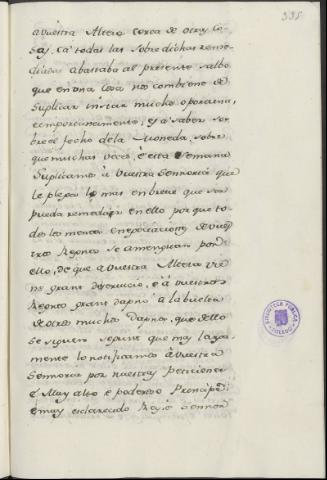 335
a Vuestra Alteza cerca de otras Co-
sas, ca todas las sobre dichas reme-
diadas abastaba al presente salbo
que en una cosa nos combiene de
Suplicar instar mucho oportuna,
e importunamente, es a saber so-
bre el fecho de la Moneda, sobre
que muchas veces, è esta Semana
Suplicamos à Vuestra Sennoria que
le plega lo mas en breve que ser
pueda remediar en ello por que to-
dos los menos en reputaciones de vues-
tros Regnos se amenguan por
ello, de que a Vuestra Alteza vie-
ne grant deservicio, è à vuestros
Regnos grant dapno à la buelta
de otros muchos Dapnos, que dello
se siguen segunt que mas larga-
mente lo notificamos à Vuestra
Sennoria por nuestras Peticiones
è Muy alto è poderoso Principe,
è muy esclarecido Rey è Sennor
BIBLIOTECA PUBLICA
TOLEDO